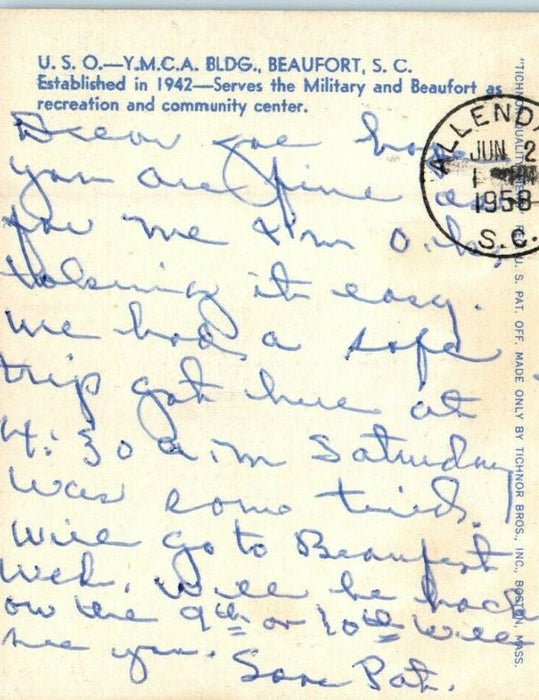 U. S. O.—Y.M.C.A. BLDG., BEAUFORT, S. C.
Established in 1942—Serves the Military and Beaufort as
recreation and community center.
Dear Joe hope
you are fine as
for me I'm O.k.
taking it easy.
we had a safe
trip got here at
4:30 a.m Saturday
was some tired.
will go to Beaufort
Wed. Will be back
on the 9th or 10th will
see you. Pat.
ALLENDA
JUN 2
1958
S.C.
"TICHNOR QUALITY U. S. PAT. OFF. MADE ONLY BY TICHNOR BROS., INC., BOSTON, MASS.